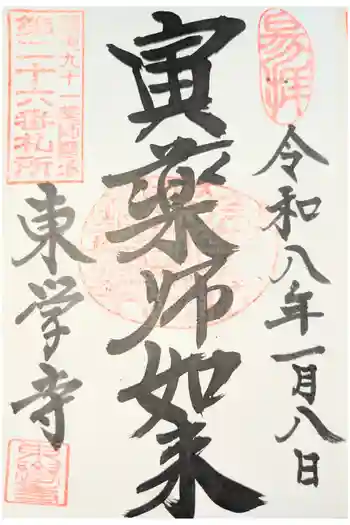 奉拝
令和八年一月八日
寅薬師如来
第二十六番札所
東学寺